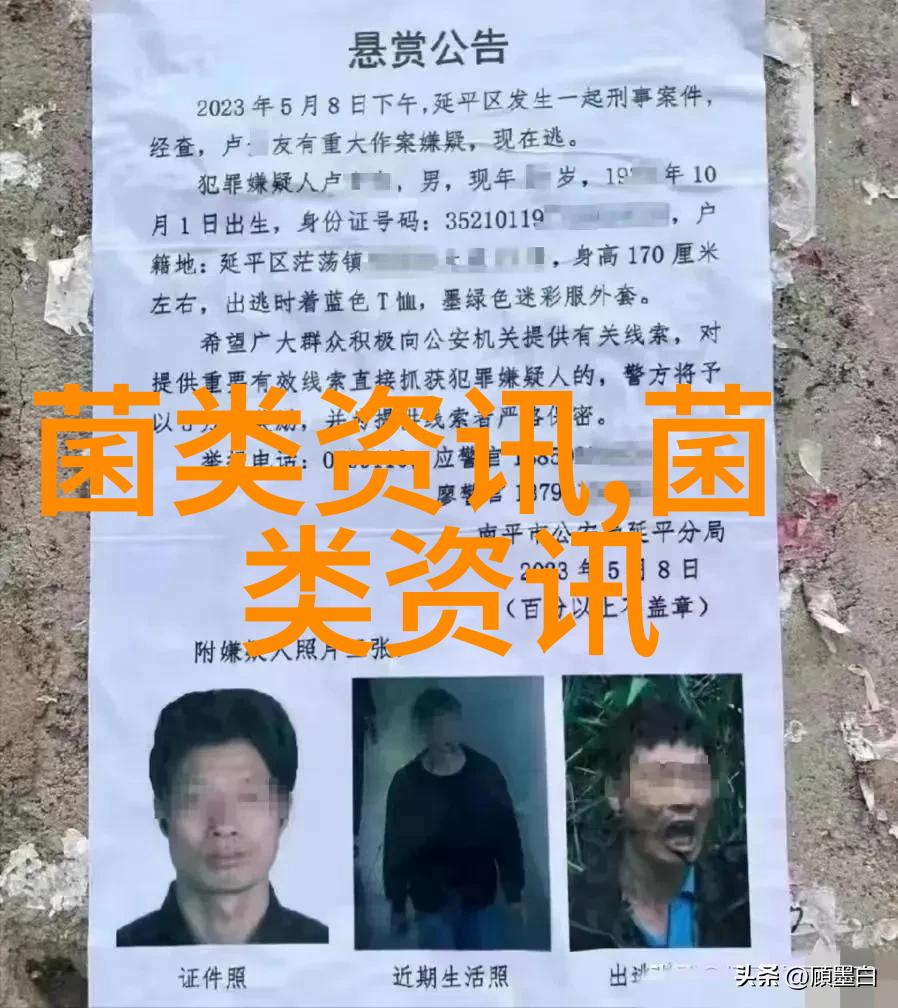 悬赏公告
2023年5月8日下午,延平区发生一起刑事案件,
经查,卢 友有重大作案嫌疑,现在逃。
犯罪嫌疑人卢 ,男,现年 岁,19 年10
月1日出生,身份证号码:35210119 ,户
籍地:延平区茫荡镇 ,身高170厘米
左右,出逃时着蓝色T恤,墨绿色迷彩服外套。
希望广大群众积极向公安机关提供有关线索,对
提供重要有效线索直接抓获犯罪嫌疑人的,警方将予
以 ,并 提供线索者严格保密。
菌类资讯,菌
类资讯
举报电话: 应警官
廖警官
南平市公安 延平分局
2023年5月8日
(百份以上不盖章)
附嫌疑人照片三张
证件照
近期生活照
出逃
头条 @顾墨白